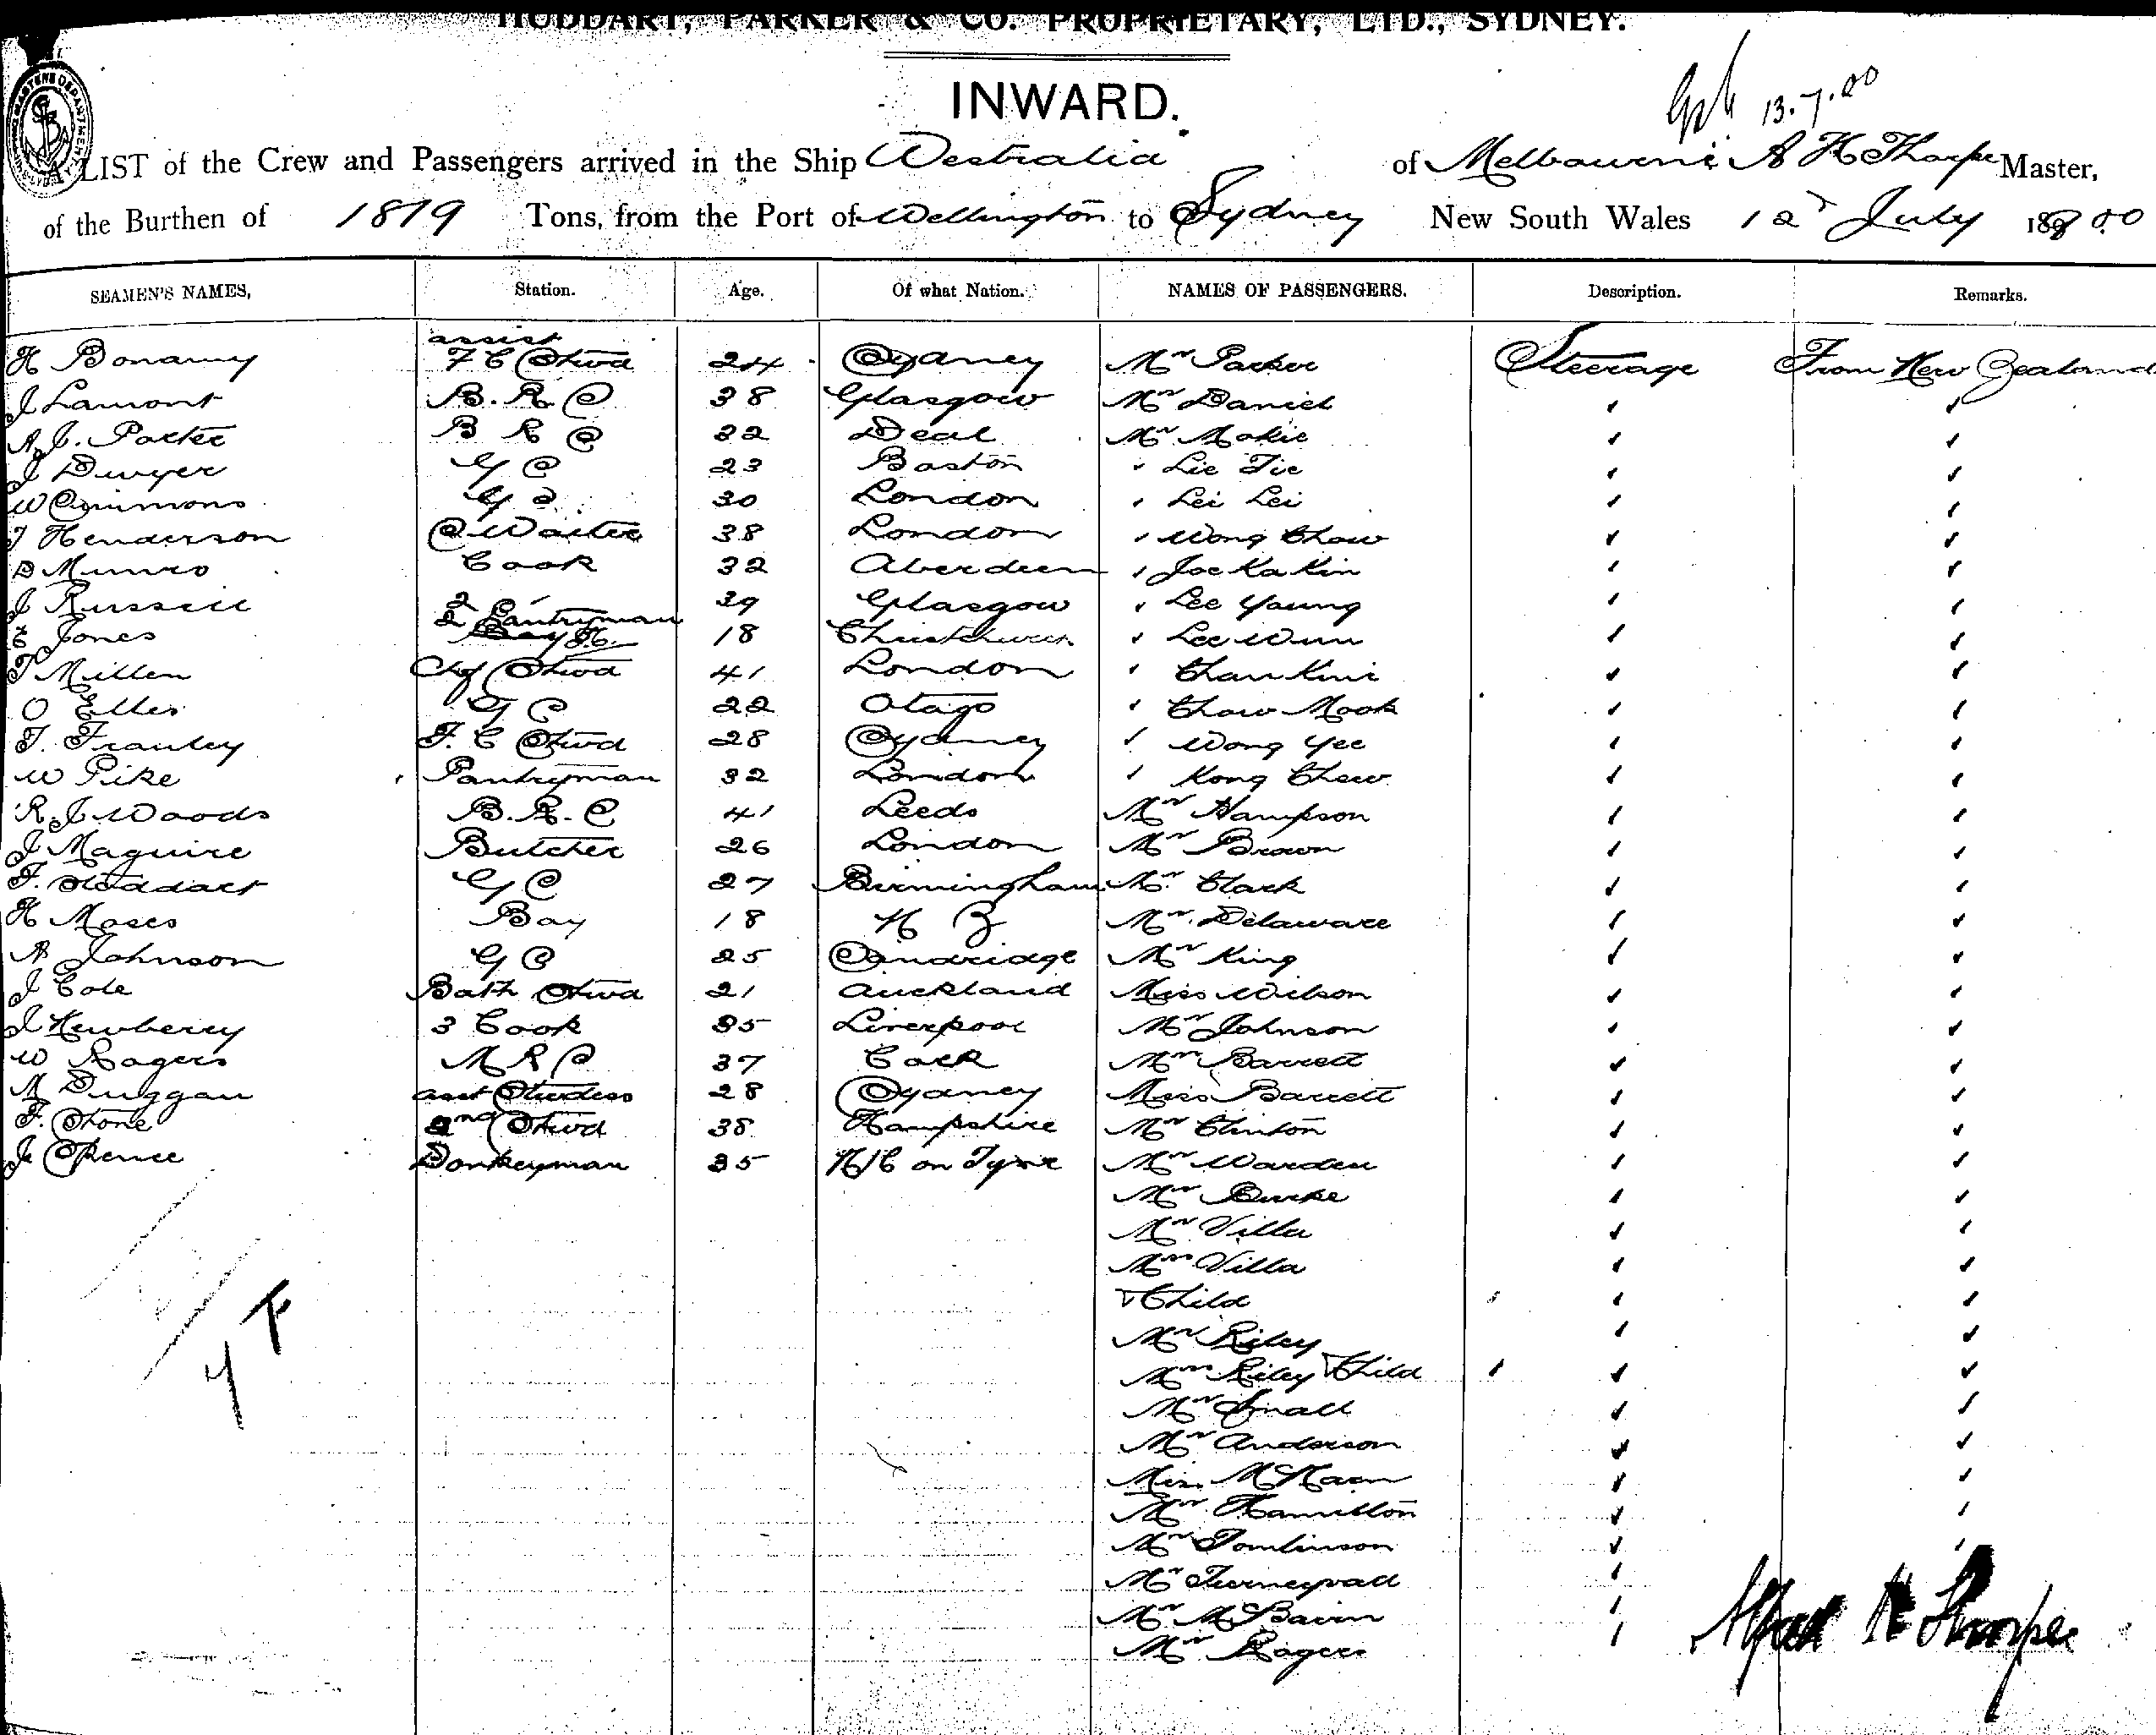 HUDDART, PARKER & CO. PROPRIETARY, LTD., SYDNEY.
INWARD.
13.7.00
LIST of the Crew and Passengers arrived in the Ship Westralia of Melbourne A H Thorpe Master,
of the Burthen of 1819 Tons, from the Port of Wellington to Sydney New South Wales 12 July 00
SEAMEN'S NAMES, Station. Age. Of what Nation. NAMES OF PASSENGERS. Description. Remarks.
assist
H Bonamy F C Stwd 24 Sydney Mr Parker Steerage From New Zealand
J Lamont B. R. S 38 Glasgow Mr Daniel
A J. Porter B R S 32 Deal Mr Mokie
J Dwyer G S 23 Boston Lie Tie
W Simmons G S 30 London Lei Lei
J Henderson S. Waiter 38 London Wong Chow
D Munro Cook 32 Aberdeen Joe Ka Kin
J Russell 2 39 Glasgow Lee Young
E Jones 2 Pantryman 18 Christchurch Lee Wun
T Millen Chf Stwd 41 London Chan Kini
O Elles G S 22 Otago Chow Mook
T. Frawley F. C Stwd 28 Sydney Wong Yee
W Pike Pantryman 32 London Kong Chew
R. J. Woods B. R. S 41 Leeds Mr Hampson
J Maguire Butcher 26 London Mr Brown
F. Stoddart G S 27 Birmingham Mr. Clark
H Moses Boy 18 N Z Mr. Delaware
A Johnson G S 25 Sandridge Mr King
J Cole Bath Stwd 21 Auckland Miss Wilson
J Newberry 3 Cook 35 Liverpool Mr Johnson
W Rogers M R S 37 Cork Mrs Barrett
M Duggan asst Stwdess 28 Sydney Miss Barrett
F. Stone 2nd Stwd 38 Hampshire Mr Clinton
J Spence Donkeyman 35 N/C on Tyne Mr Warden
Mr Burke
Mr Villa
Mrs Villa
& Child
Mr Riley
Mrs Riley & Child
Mr Small
Mr Anderson
Mr. Hamilton
Mr Tomlinson
Mr McBairn
Mr Rogers
Alfred H Thorpe